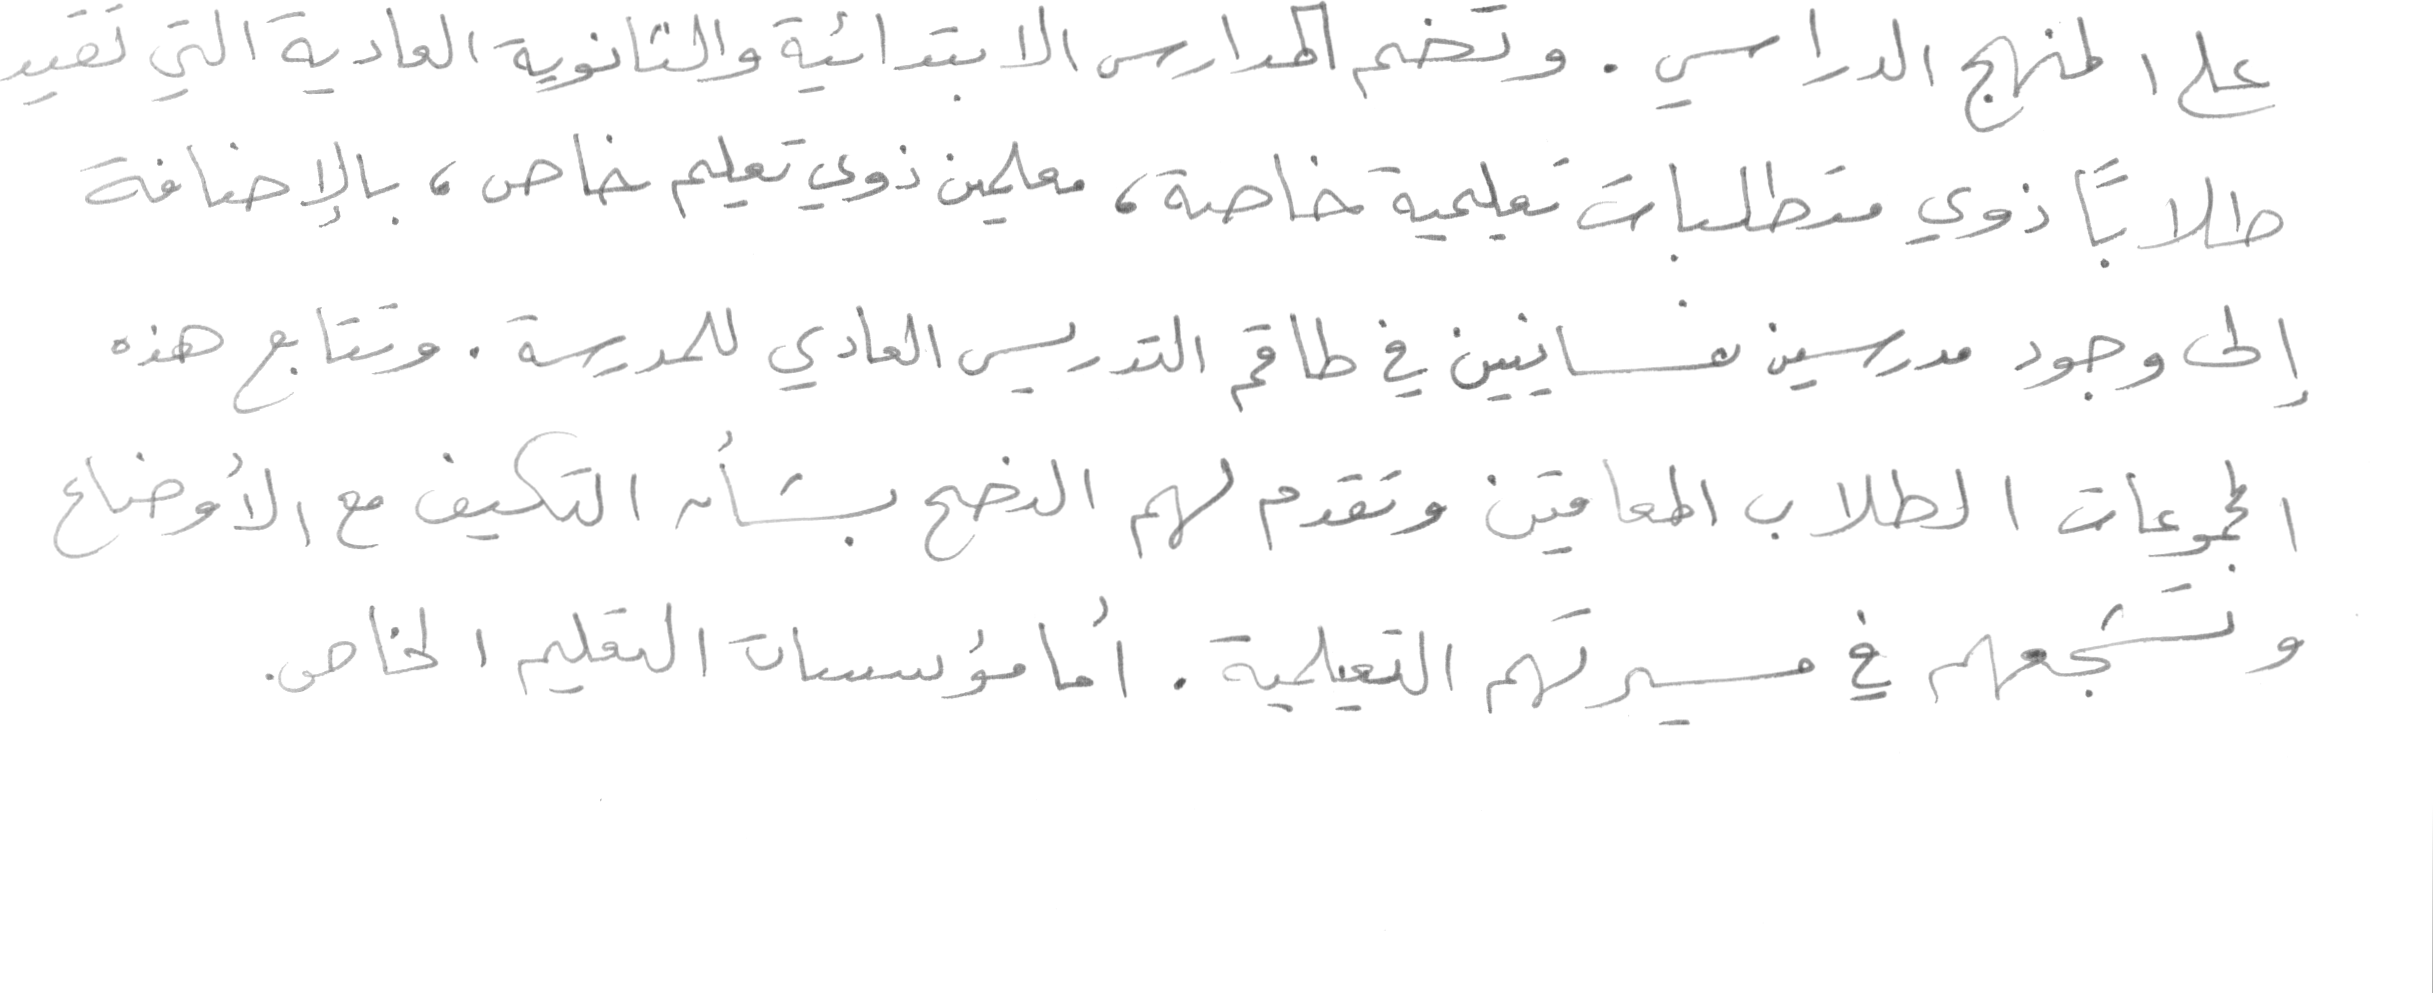 على المنهج الدراسي. وتضم المدارس الابتدائية والثانوية العادية التي تقيد
طلابًا ذوي متطلبات تعليمية خاصة، معلمين ذوي تعليم خاص، بالإضافة
إلى وجود مدرسين نفسانيين في طاقم التدريس العادي للمدرسة. وتتابع هذه
المجموعات الطلاب المعاقين وتقدم لهم النصح بشأن التكيف مع الأوضاع
وتشجعهم في مسيرتهم التعليمية. أما مؤسسات التعليم الخاص.